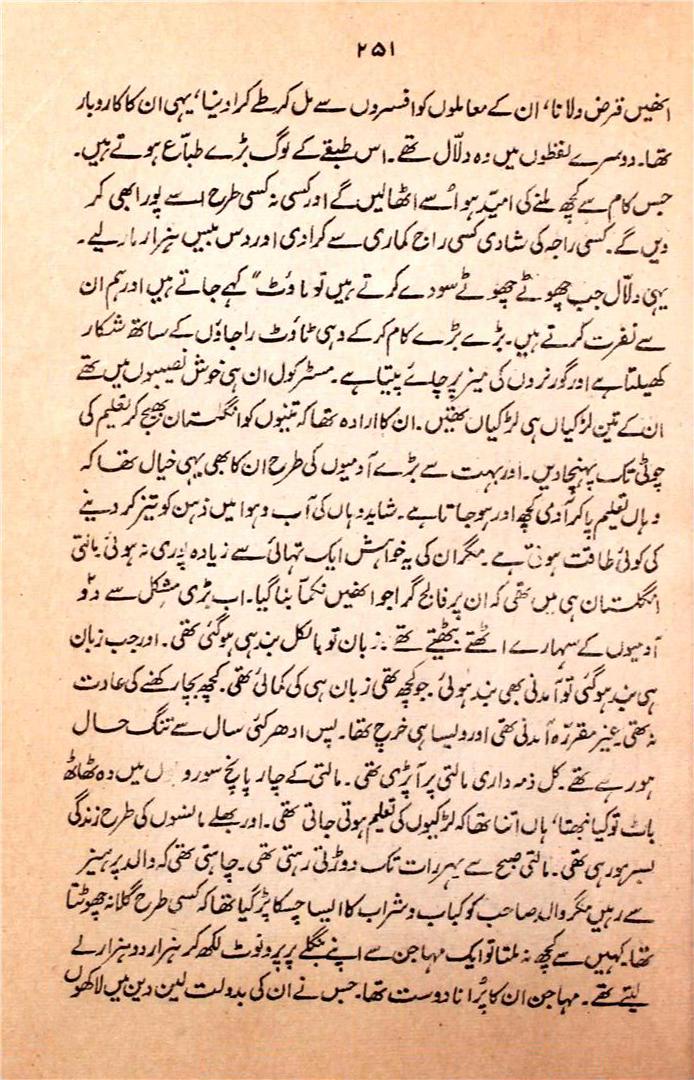 ۲۵۱
انھیں قرض دلانا، ان کے معاملوں کو افسروں سے مل کر طے کرا دینا، یہی ان کا کاروبار
تھا۔ دوسرے لفظوں میں وہ دلّال تھے۔ اس طبقے کے لوگ بڑے طبّاع ہوتے ہیں۔
جس کام سے کچھ ملنے کی امیّد ہو اُسے اٹھا لیں گے اور کسی نہ کسی طرح اسے پورا بھی کر
دیں گے۔ کسی راجہ کی شادی کسی راج کماری سے کرا دی اور دس بیس ہزار مار لیے۔
یہی دلّال جب چھوٹے چھوٹے سودے کرتے ہیں تو ٹاؤٹ" کہے جاتے ہیں اور ہم ان
سے نفرت کرتے ہیں۔ بڑے بڑے کام کر کے وہی ٹاؤٹ راجاؤں کے ساتھ شکار
کھیلتا ہے اور گورنروں کی میز پر چائے پیتا ہے۔ مسٹر کول ان ہی خوش نصیبوں میں تھے
ان کے تین لڑکیاں ہی لڑکیاں تھیں۔ ان کا ارادہ تھا کہ تینوں کو انگلستان بھیج کر تعلیم کی
چوٹی تک پہنچا دیں۔ اور بہت سے بڑے آدمیوں کی طرح ان کا بھی یہی خیال تھا کہ
وہاں تعلیم پا کر آدمی کچھ اور ہو جاتا ہے۔ شاید وہاں کی آب و ہوا میں ذہن کو تیز کر دینے
کی کوئی طاقت ہوتی ہے۔ مگر ان کی یہ خواہش ایک تہائی سے زیادہ پوری نہ ہوئی۔ مالتی
انگلستان ہی میں تھی کہ ان پر فالج گرا جو انھیں نکمّا بنا گیا۔ اب بڑی مشکل سے دو
آدمیوں کے سہارے اٹھتے بیٹھتے تھے۔ زبان تو بالکل بند ہی ہو گئی تھی۔ اور جب زبان
ہی بند ہو گئی تو آمدنی بھی بند ہوئی۔ جو کچھ تھی زبان ہی کی کمائی تھی۔ کچھ بچا رکھنے کی عادت
نہ تھی۔ غیر مقررّہ آمدنی تھی اور ویسا ہی خرچ تھا۔ پس ادھر کئی سال سے تنگ حال
ہو رہے تھے۔ کل ذمہ داری مالتی پر آ پڑی تھی۔ مالتی کے چار پانچ سو روپوں میں وہ ٹھاٹھ
باٹ تو کیا نبھتا، ہاں اتنا تھا کہ لڑکیوں کی تعلیم ہوتی جاتی تھی۔ اور بھلے مانسوں کی طرح زندگی
بسر ہو رہی تھی۔ مالتی صبح سے پہر رات تک دوڑتی رہتی تھی۔ چاہتی تھی کہ والد پرہیز
سے رہیں مگر والد صاحب کو کباب و شراب کا ایسا چسکا پڑ گیا تھا کہ کسی طرح گلا نہ چھوٹتا
تھا۔ کہیں سے کچھ نہ ملتا تو ایک مہاجن سے اپنے بنگلے پر پرونوٹ لکھ کر ہزار دو ہزار لے
لیتے تھے۔ مہاجن ان کا پُرانا دوست تھا۔ جس نے ان کی بدولت لین دین میں لاکھوں